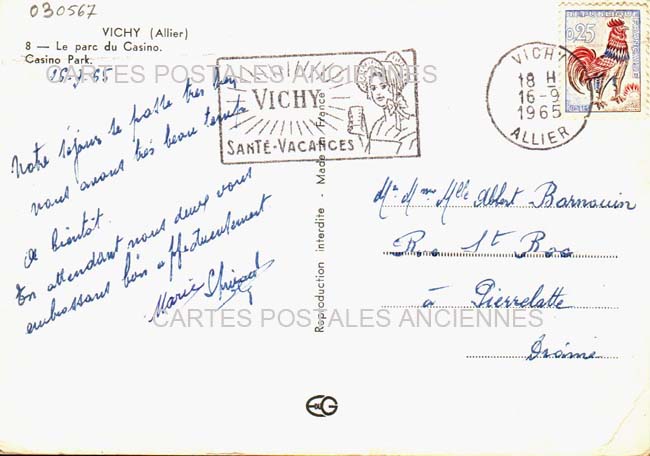 030567
VICHY (Allier)
8 — Le parc du Casino.
Casino Park.
VICHY
SANTÉ-VACANCES
VICHY
18 H
16-9
1965
ALLIER
0,25
CARTES POSTALES ANCIENNES
Notre séjour se passe très bien
nous avons très beau temps
A bientôt.
En attendant nous deux vous
embrassons bien affectueusement
Marie
Mr Mme Mlle Albert Barnouin
Rue St Roc
à Pierrelatte
Drôme
Reproduction interdite - Made France
CARTES POSTALES ANCIENNES